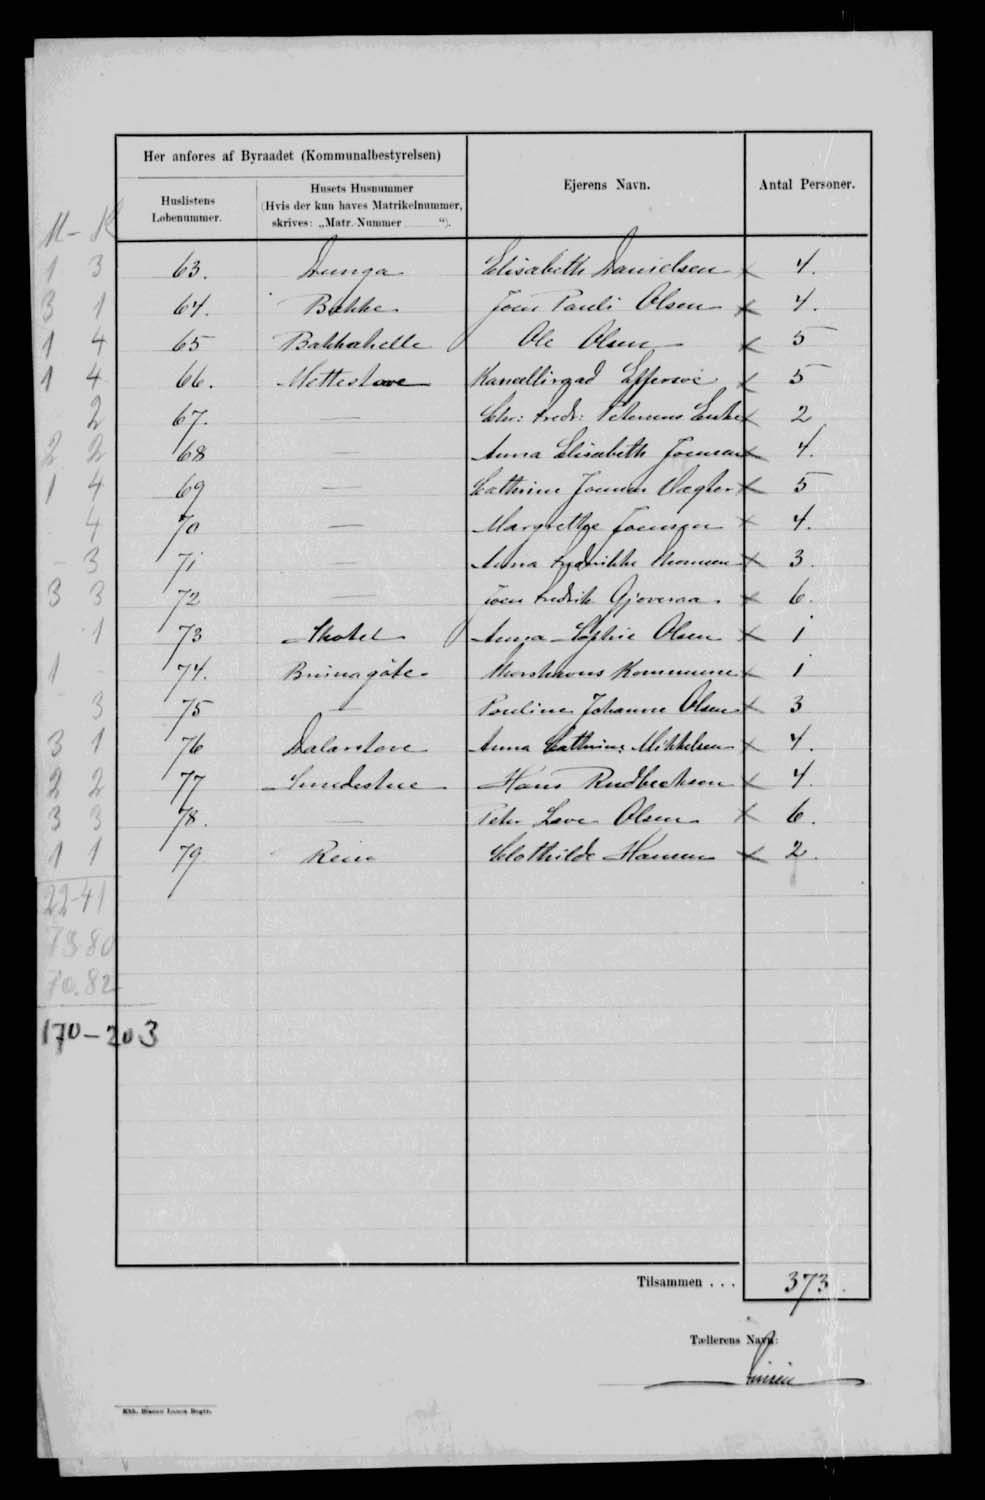 Her anføres af Byraadet (Kommunalbestyrelsen)
Ejerens Navn.
Antal Personer.
Huslistens Løbenummer.
Husets Husnummer
(Hvis der kun haves Matrikelnummer,
skrives: „Matr. Nummer ........ “).
M - K
1 3 63. Dunga Elisabeth Danielsen x 4.
3 1 64. Bakke Joen Pauli Olsen x 4.
1 4 65 Bakkahelle Ole Olsen x 5
1 4 66. Mettestove Kancelliraad Effersøe x 5
2 67. — Chr: Fredr: Petersens Enke x 2
2 2 68 — Anna Elisabeth Joensen x 4.
1 4 69 — Cathrine Joensen Vagter x 5
4 70 — Margrethe Joensen x 4.
- 3 71 — Anna Fredrikke Thomsen x 3.
3 3 72 — Joen Fredrik Gjoveraa x 6.
1 73 Skotet Anna Sophie Olsen x 1
1 - 74. Brunagôte Thorshavns Kommune x 1
3 75 — Pouline Johanne Olsen x 3
3 1 76 Dalarstove Anna Cathrine Mikkelsen x 4.
2 2 77 Smedestue Hans Rudbeckson x 4.
3 3 78. — Peter Olsen x 6.
1 1 79 Rein Clothilde Hansen x 2.
22-41
73 80
70.82
170-203
Tilsammen . . . 373.
Tællerens Navn:
Kbh. Bianco Lunos Bogtr.